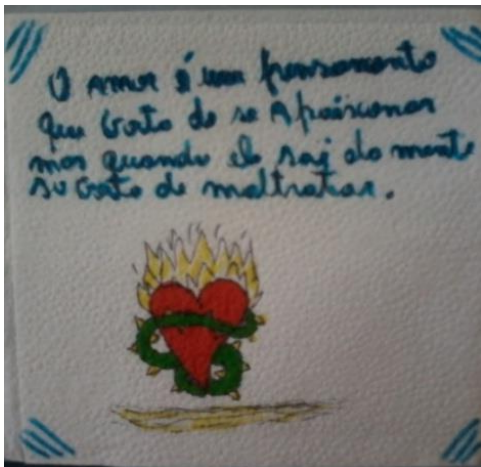 O Amor é um pensamento
que Gosta de se Apaixonar
mas quando ele sai da mente
só Gosta de maltratar.